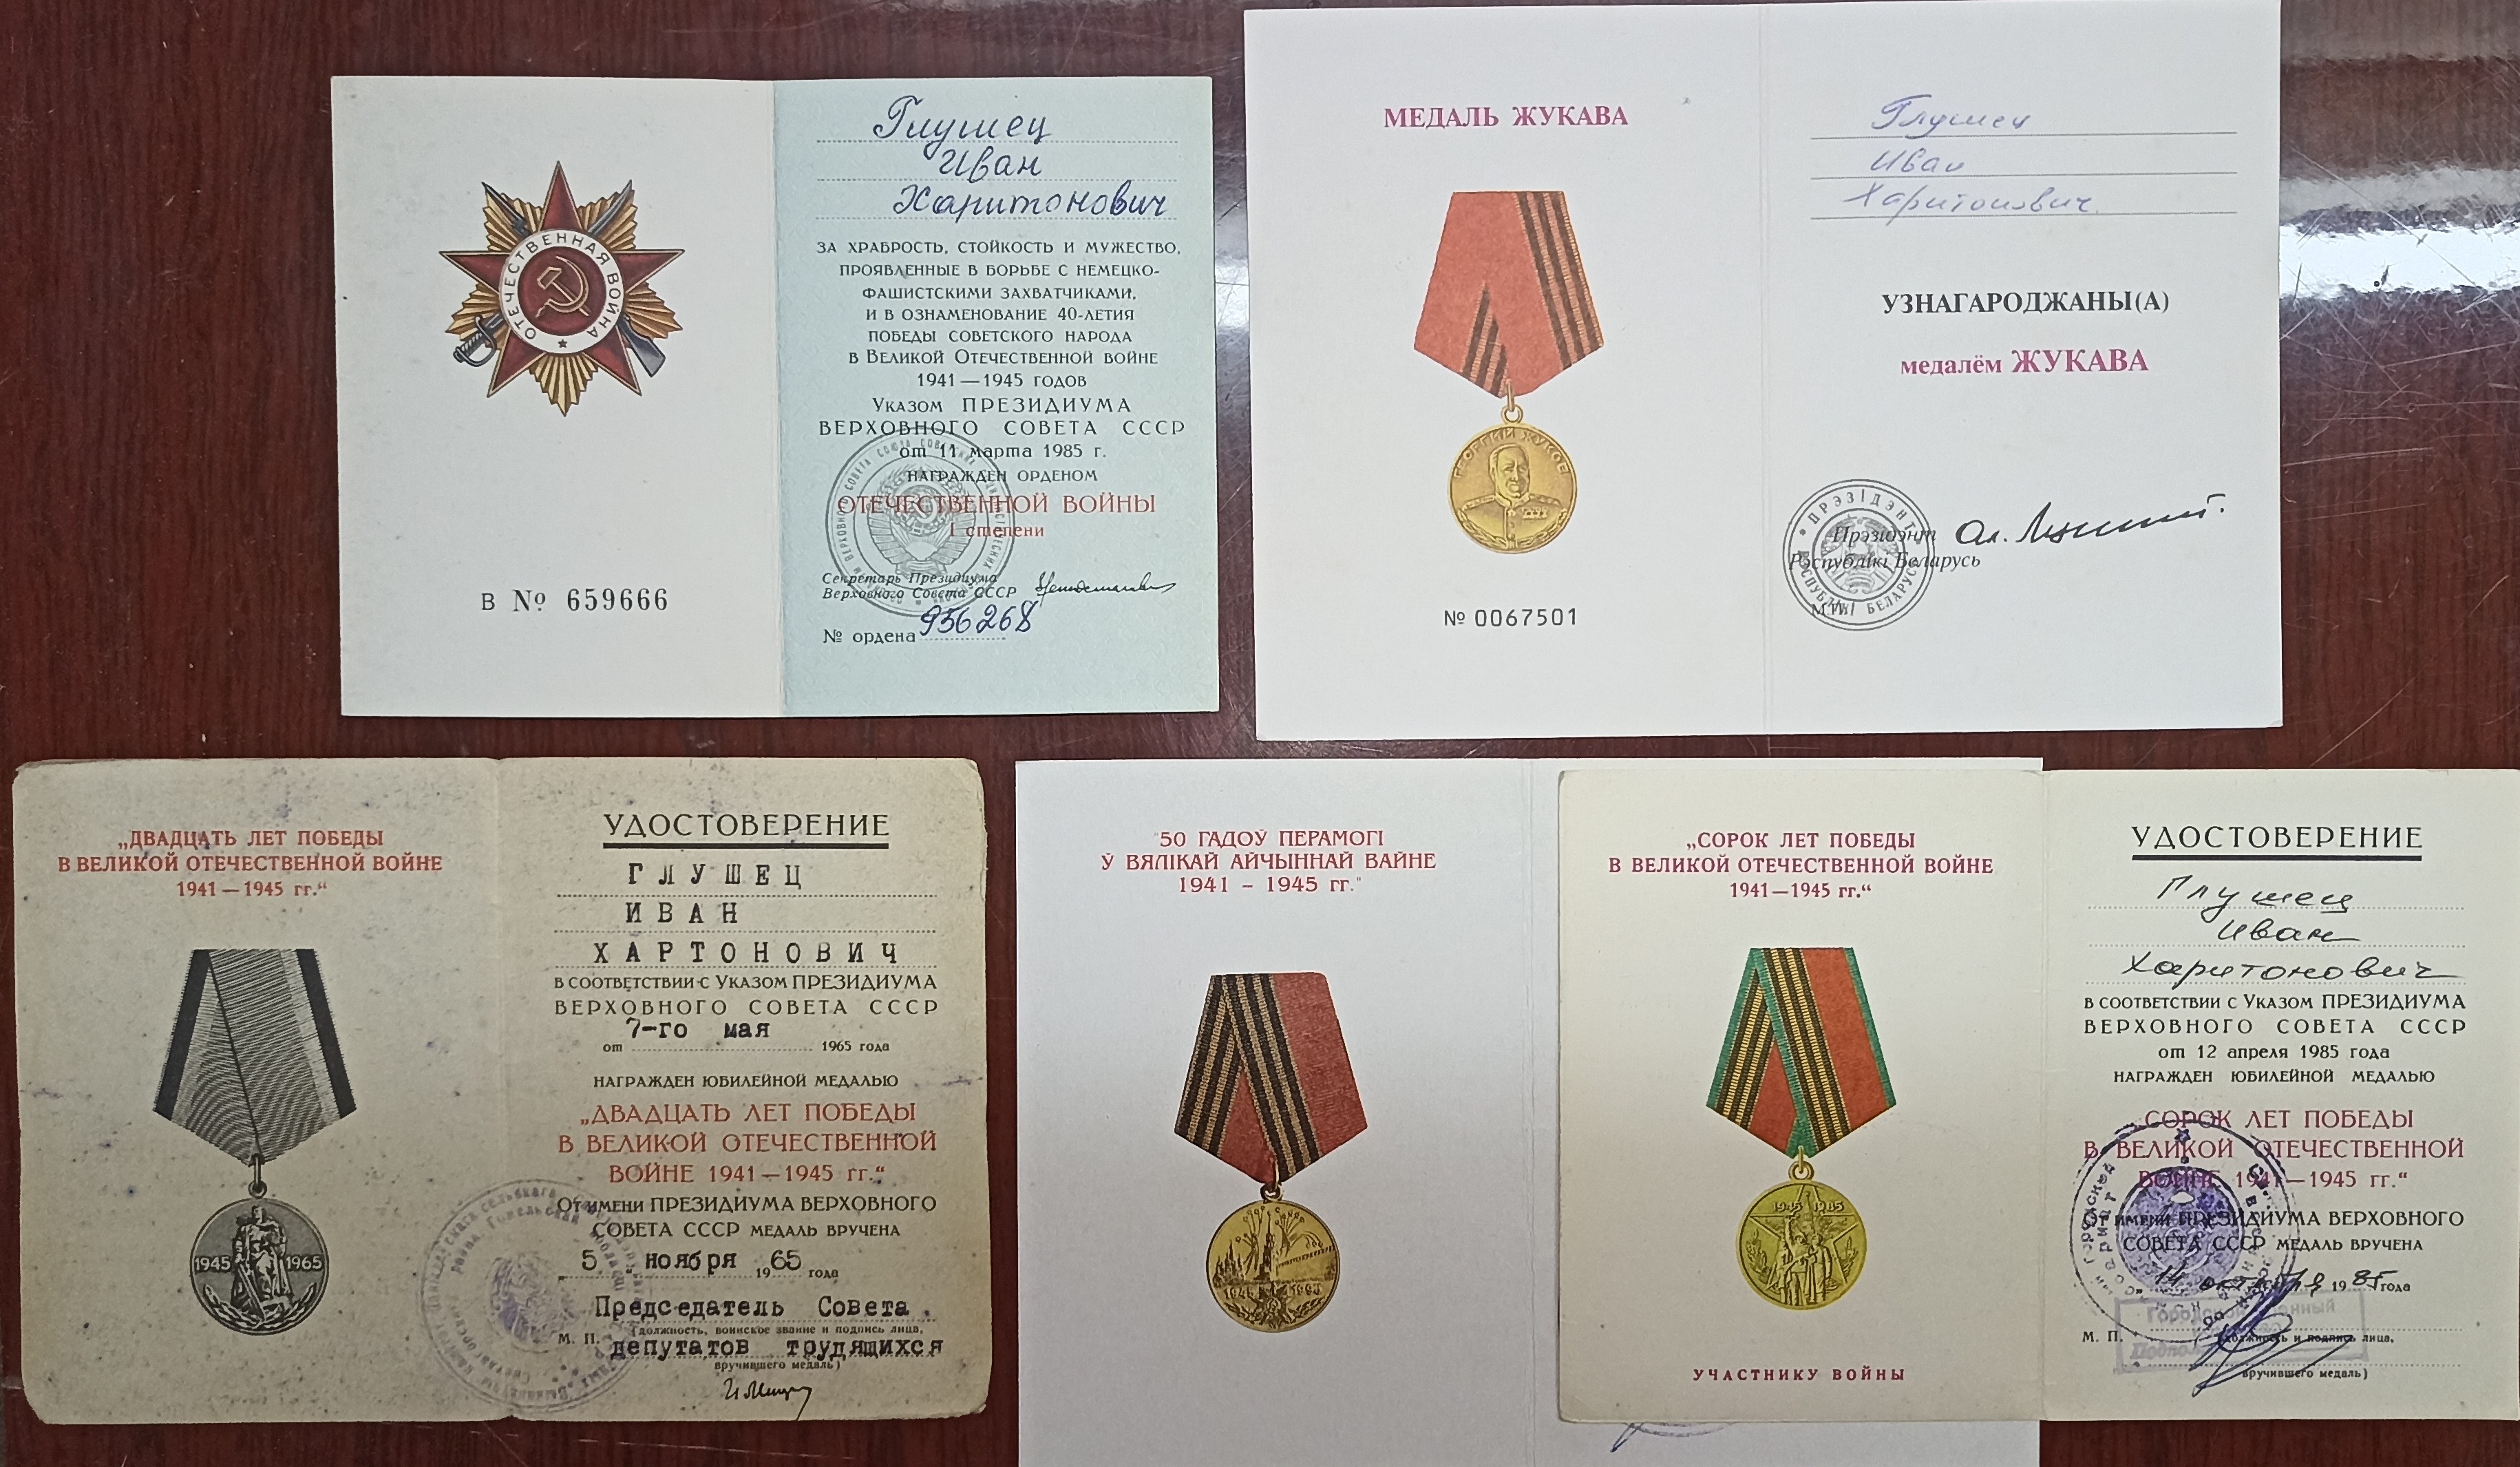 ОТЕЧЕСТВЕННАЯ ВОЙНА
В № 659666
Глушец
Иван
Харитонович
ЗА ХРАБРОСТЬ, СТОЙКОСТЬ И МУЖЕСТВО,
ПРОЯВЛЕННЫЕ В БОРЬБЕ С НЕМЕЦКО-
ФАШИСТСКИМИ ЗАХВАТЧИКАМИ,
И В ОЗНАМЕНОВАНИЕ 40-ЛЕТИЯ
ПОБЕДЫ СОВЕТСКОГО НАРОДА
В ВЕЛИКОЙ ОТЕЧЕСТВЕННОЙ ВОЙНЕ
1941—1945 ГОДОВ
УКАЗОМ ПРЕЗИДИУМА
ВЕРХОВНОГО СОВЕТА СССР
от 11 марта 1985 г.
НАГРАЖДЕН ОРДЕНОМ
ОТЕЧЕСТВЕННОЙ ВОЙНЫ
I степени
Секретарь Президиума
Верховного Совета СССР
№ ордена 956268
МЕДАЛЬ ЖУКАВА
ГЕОРГИЙ ЖУКОВ
№ 0067501
Глушец
Иван
Харитонович
УЗНАГАРОДЖАНЫ(А)
медалём ЖУКАВА
ПРЭЗІДЭНТ
РЭСПУБЛІКІ БЕЛАРУСЬ
Прэзідэнт
Рэспублікі Беларусь
М.П.
„ДВАДЦАТЬ ЛЕТ ПОБЕДЫ
В ВЕЛИКОЙ ОТЕЧЕСТВЕННОЙ ВОЙНЕ
1941—1945 гг.“
1945 1965
УДОСТОВЕРЕНИЕ
ГЛУШЕЦ
ИВАН
ХАРТОНОВИЧ
В СООТВЕТСТВИИ С УКАЗОМ ПРЕЗИДИУМА
ВЕРХОВНОГО СОВЕТА СССР
от 7-го мая 1965 года
НАГРАЖДЕН ЮБИЛЕЙНОЙ МЕДАЛЬЮ
„ДВАДЦАТЬ ЛЕТ ПОБЕДЫ
В ВЕЛИКОЙ ОТЕЧЕСТВЕННОЙ
ВОЙНЕ 1941—1945 гг.“
ОТ ИМЕНИ ПРЕЗИДИУМА ВЕРХОВНОГО
СОВЕТА СССР МЕДАЛЬ ВРУЧЕНА
5 „ ноября 1965 года
Председатель Совета
(должность, воинское звание и подпись лица,
М. П. депутатов трудящихся
вручившего медаль)
"50 ГАДОЎ ПЕРАМОГІ
Ў ВЯЛІКАЙ АЙЧЫННАЙ ВАЙНЕ
1941 – 1945 гг."
1945 1995
„СОРОК ЛЕТ ПОБЕДЫ
В ВЕЛИКОЙ ОТЕЧЕСТВЕННОЙ ВОЙНЕ
1941—1945 гг.“
1945 1985
УЧАСТНИКУ ВОЙНЫ
УДОСТОВЕРЕНИЕ
Глушец
Иван
Харитонович
В СООТВЕТСТВИИ С УКАЗОМ ПРЕЗИДИУМА
ВЕРХОВНОГО СОВЕТА СССР
от 12 апреля 1985 года
НАГРАЖДЕН ЮБИЛЕЙНОЙ МЕДАЛЬЮ
„СОРОК ЛЕТ ПОБЕДЫ
В ВЕЛИКОЙ ОТЕЧЕСТВЕННОЙ
ВОЙНЕ 1941—1945 гг.“
ОТ ИМЕНИ ПРЕЗИДИУМА ВЕРХОВНОГО
СОВЕТА СССР МЕДАЛЬ ВРУЧЕНА
14 октября 1985 года
М. П. (должность и подпись лица,
вручившего медаль)